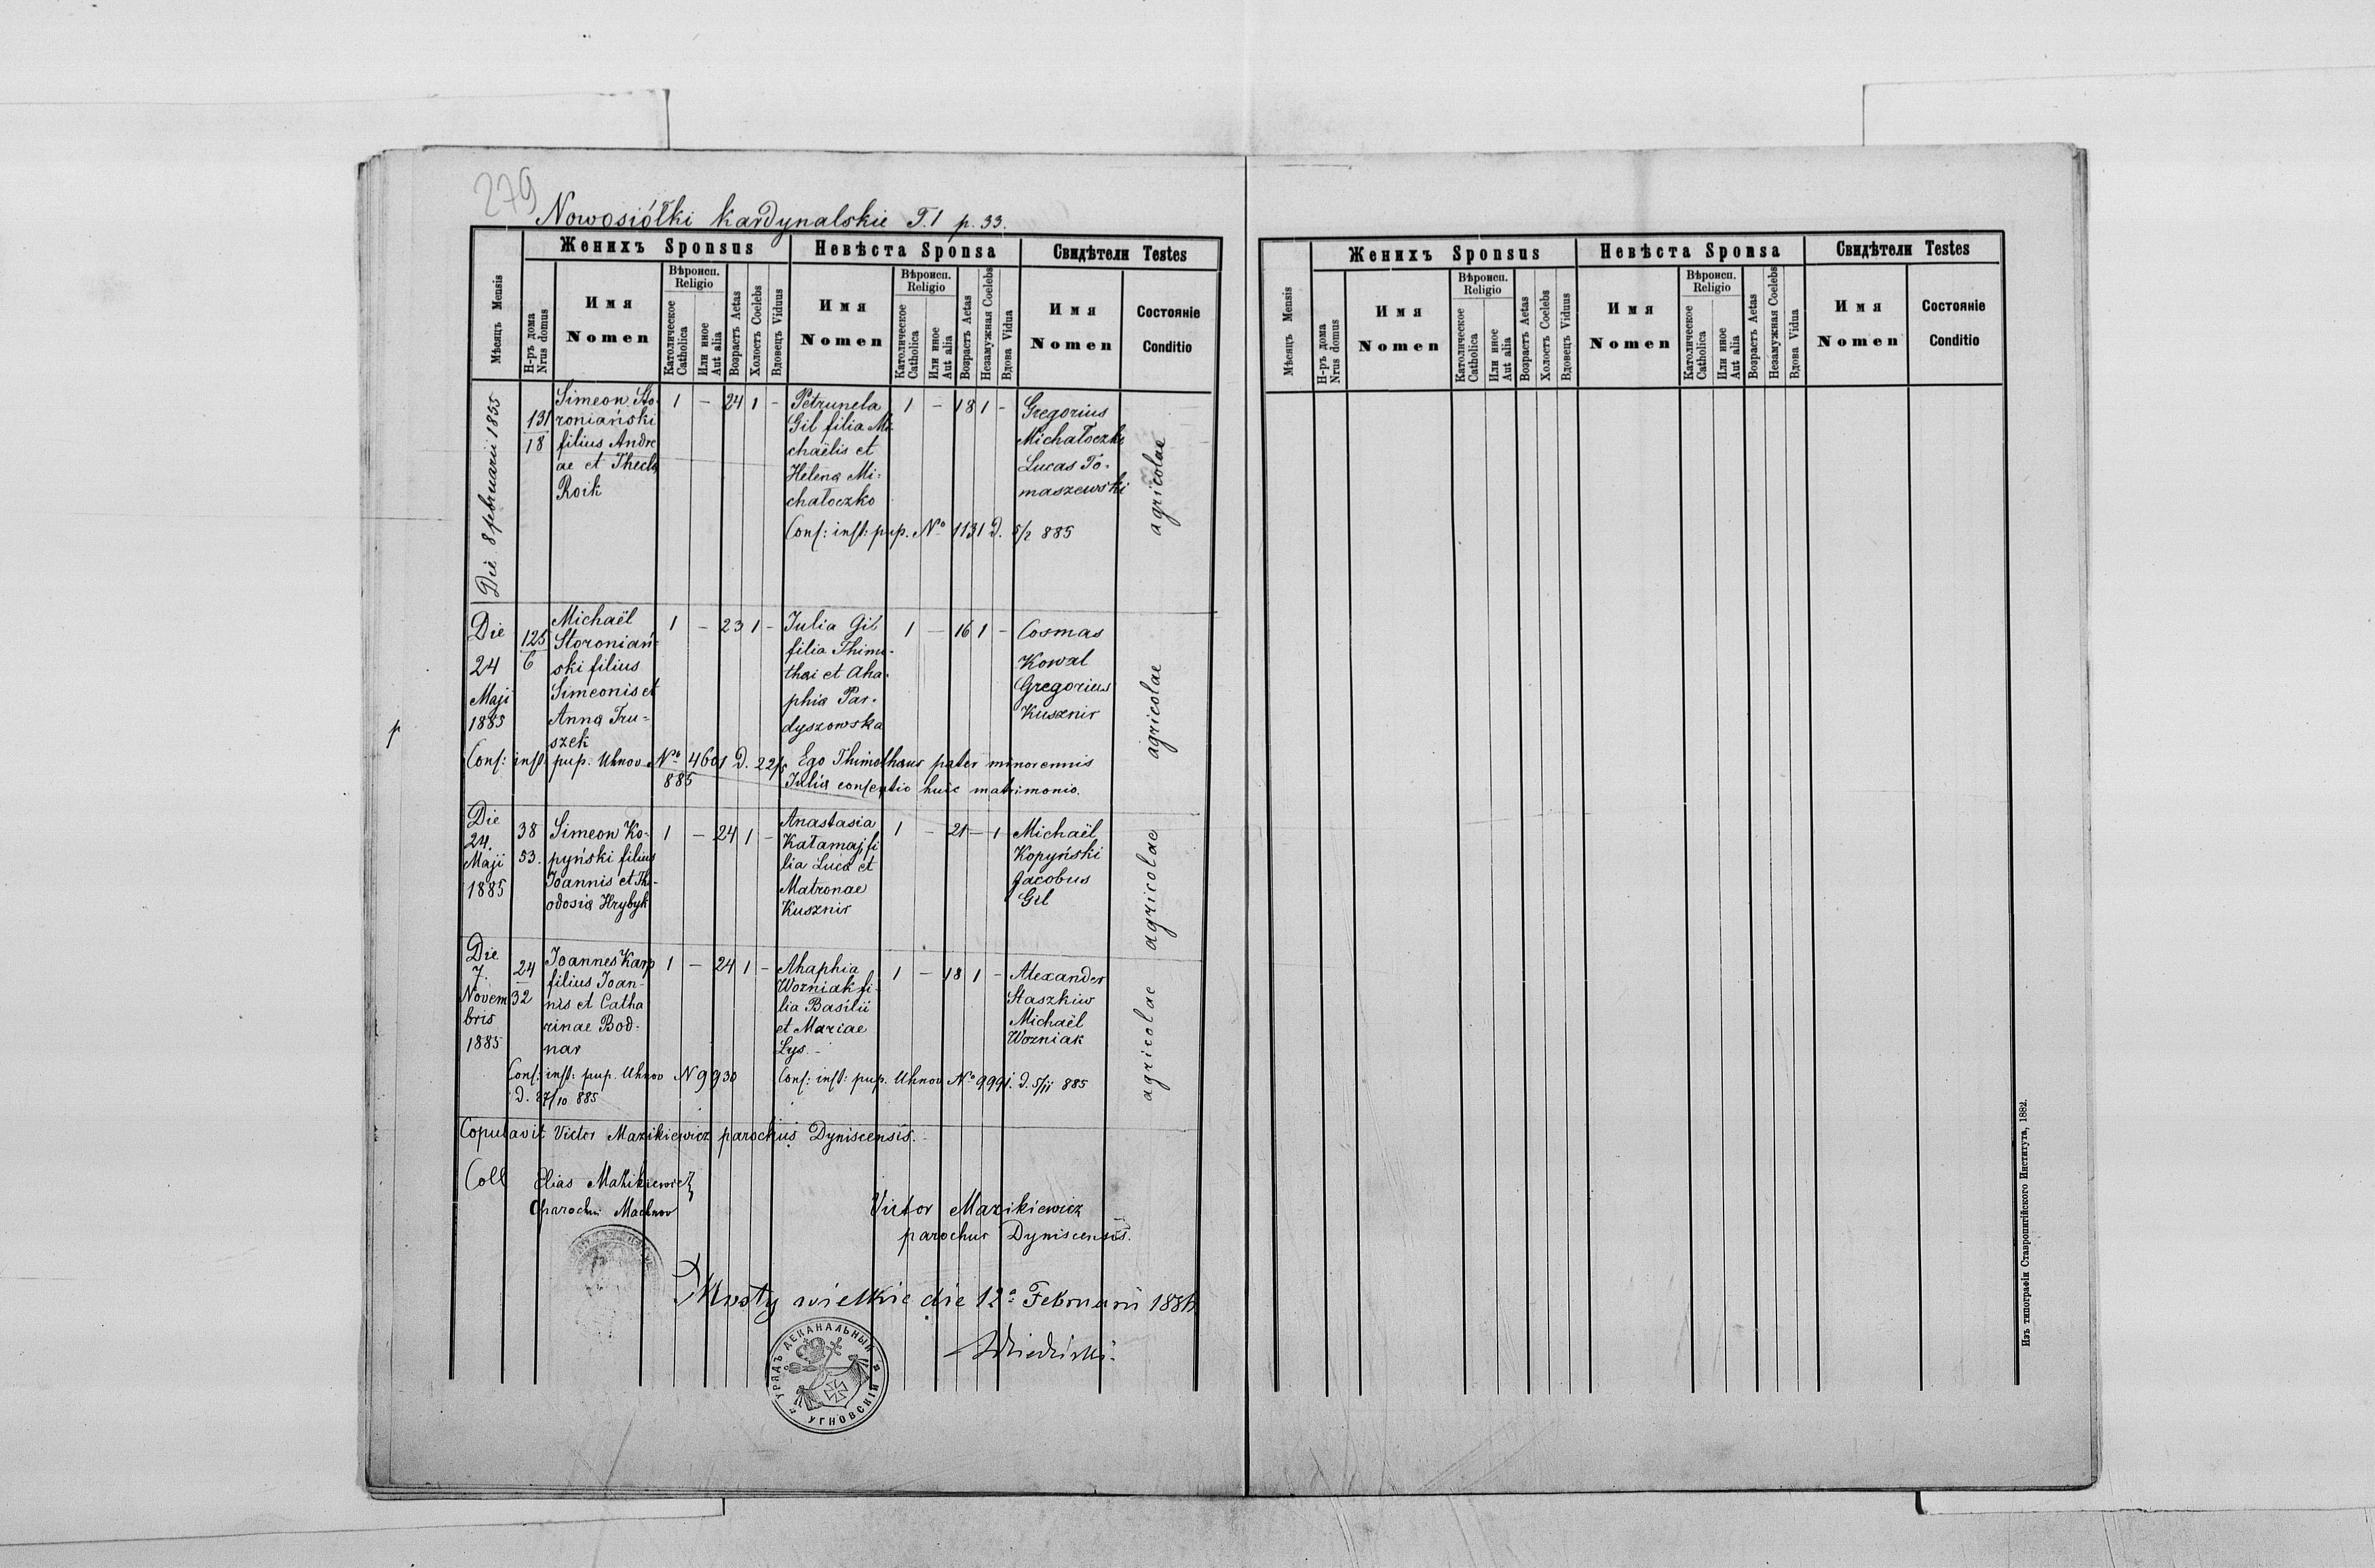 279
Nowosiółki kardynalskie T.1 p. 33.
Мѣсяцъ Mensis
Женихъ Sponsus
Невѣста Sponsa
Свидѣтели Testes
Н-ръ дома Nrus domus
Имя
Nomen
Вѣроисп.
Religio
Католическое Catholica
Или иное Aut alia
Возрастъ Aetas
Холостъ Coelebs
Вдовецъ Viduus
Имя
Nomen
Вѣроисп.
Religio
Католическое Catholica
Или иное Aut alia
Возрастъ Aetas
Незамужная Coelebs
Вдова Vidua
Имя
Nomen
Состояніе
Conditio
Die 8 februarii 1885
131
18
Simeon Sto-
roniański
filius Andre
ae et Thecla
Roik
1 – 24 1 –
Petrunela
Gil filia Mi-
chaëlis et
Helena Mi-
chałoczko
1 – 18 1 –
Gregorius
Michałoczko
Lucas To-
maszewski
agricolae
Conf: inst: pup. No 1131 d. 5/2 885
Die
24
Maji
1885
125
6
Michaël
Storoniań-
ski filius
Simeonis et
Anna Tru-
szek
1 – 23 1 –
Julia Gil
filia Thimo-
thei et Aha-
phia Par-
dyszowska
1 – 16 1 –
Cosmas
Kowal
Gregorius
Kusznir
agricolae
Conf: inst: pup. Uhnov No 4601 d. 22/5
885
Ego Thimotheus pater minorennis
Julia consentio huic matrimonio.
Die
24.
Maji
1885
38
53.
Simeon Ko-
pyński filius
Joannis et The-
odosia Hrybyk
1 – 24 1 –
Anastasia
Katamaj fi
lia Luca et
Matronae
Kusznir
1 – 21 – 1
Michaël
Kopyński
Jacobus
Gil
agricolae
Die
7.
Novem
bris
1885
24
32
Joannes Karp
filius Joan-
nis et Catha
rinae Bod-
nar
1 – 24 1 –
Ahaphia
Wozniak fi-
lia Basilii
et Mariae
Lys.
1 – 18 1 –
Alexander
Staszkiw
Michaël
Wozniak
agricolae
Conf: inst: pup. Uhnov N 9930
d. 27/10 885
Conf: inst: pup. Uhnov No 9991. d. 5/11 885
Copulavit Victor Mazikiewicz parochus Dyniscensis.
Coll Elias Mazikiewicz
parochus Machnov
Victor Mazikiewicz
parochus Dyniscensis.
Mosty wielkie die 12a Februarii
УРЯДЪ ДЕКАНАЛЬНЫЙ УГНОВСКІЙ
Мѣсяцъ Mensis
Женихъ Sponsus
Невѣста Sponsa
Свидѣтели Testes
Н-ръ дома Nrus domus
Имя
Nomen
Вѣроисп.
Religio
Католическое Catholica
Или иное Aut alia
Возрастъ Aetas
Холостъ Coelebs
Вдовецъ Viduus
Имя
Nomen
Вѣроисп.
Religio
Католическое Catholica
Или иное Aut alia
Возрастъ Aetas
Незамужная Coelebs
Вдова Vidua
Имя
Nomen
Состояніе
Conditio
Изъ типографіи Ставропигійского Института, 1882.